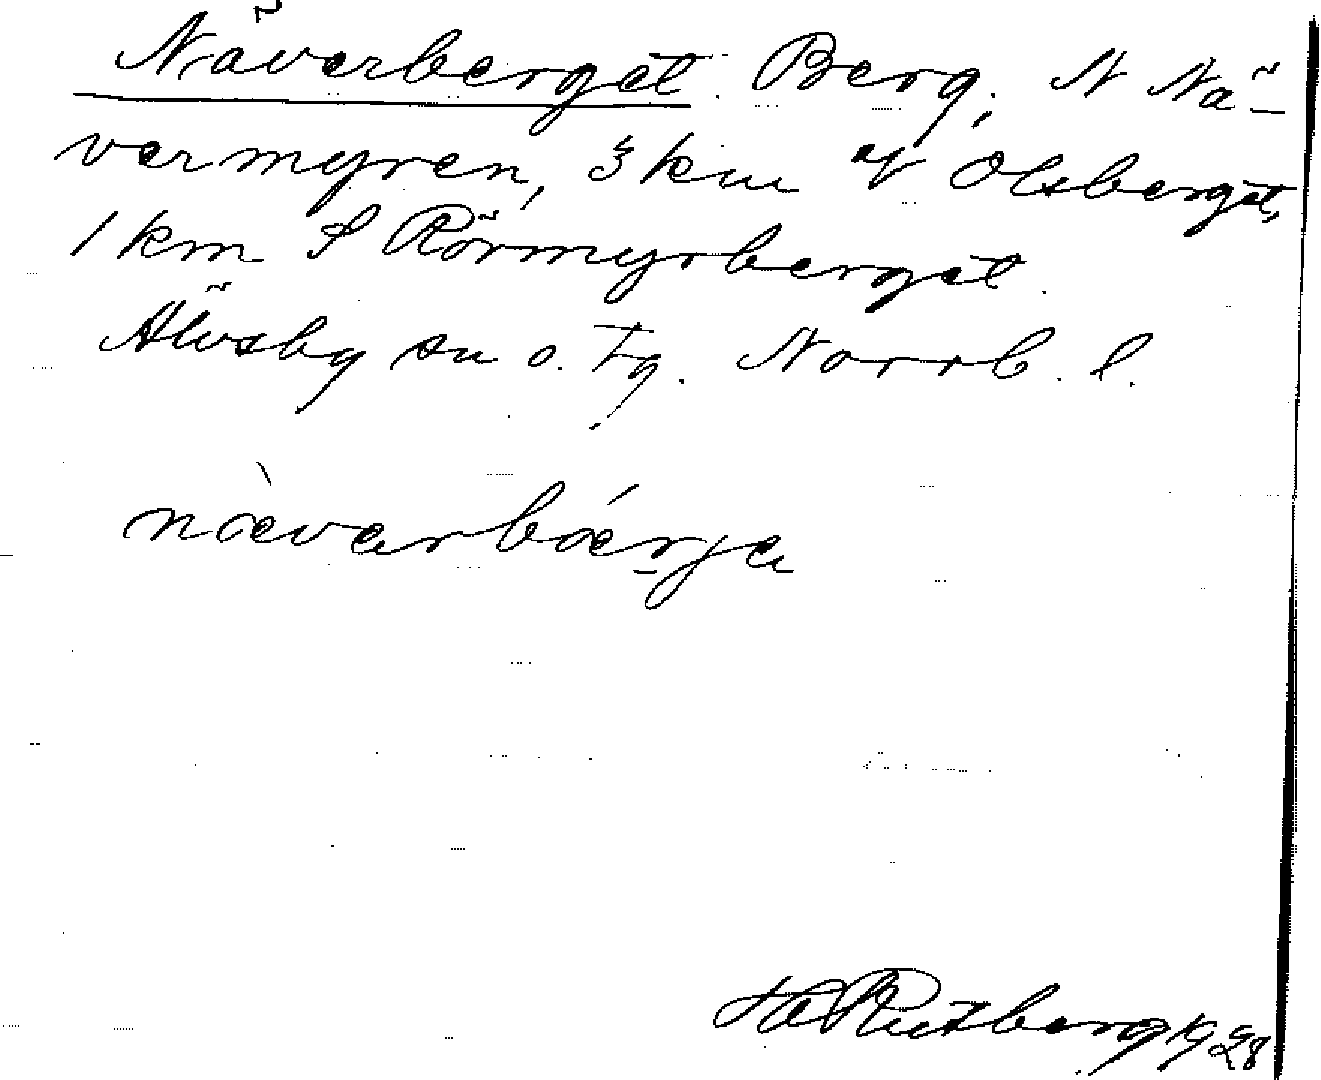 Näverberget. Berg, N Nä-
vermyren, 3 km V Olsberget,
1 km S Rörmyrberget.
Älvsby sn o. tg. Norrb. l.
nàevarbáerja
H Rutberg 1928